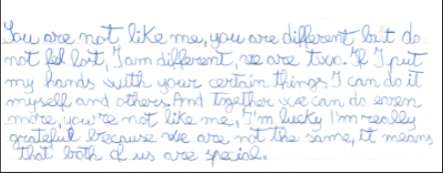 You are not like me, you are different but do
not feel lost, I am different, we are two. If I put
my hands with your certain things I can do it
myself and others. And together we can do even
more, you're not like me, I'm lucky I'm really
grateful because we are not the same, it means
that both of us are special.